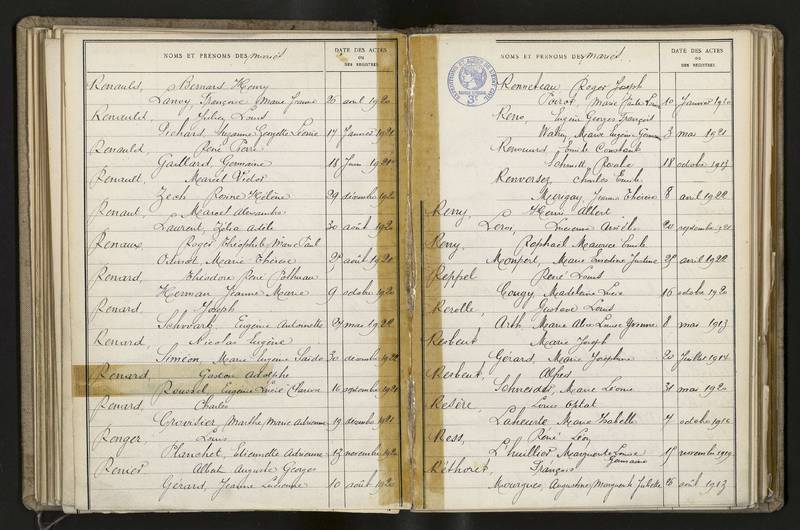 NOMS ET PRÉNOMS DES mariés
DATE DES ACTES
OU
DES REGISTRES
Renauld, Bernard Henry
Françoise Marie Jeanne 26 avril 1920
Renauld, Louis
Pichard Suzanne Georgette Leonie 17 Janvier 1921
Renauld, René Pierre
Gaillard, Germaine 18 Juin 1921
Renault, Marcel Victor
Zech Hélène 29 décembre 1920
Renaut, Marcel Alexandre
Laurent, Zélia Adèle 30 août 1920
Renaux, Roger Théophile Marie Paul
Marie Thérèse 27 août 1921
Renard, Théodore René
Herman Jeanne Marie 9 octobre 1920
Renard, Joseph
Schwartz, Eugénie Antoinette 27 mai 1922
Renard, Nicolas Eugène
Siméon, Marie Eugénie 30 décembre 1922
Renard, Gaston Adolphe
Roussel, Eugénie Lucie 16 septembre 1921
Renard, Charles
Grovisier, Marthe, Marie Adrienne 19 décembre 1921
Renger, Louis
Planchet, Etiennette Adrienne 13 novembre 1920
Renier, Albert Auguste Georges
Gérard, Jeanne 10 août 1920
NOMS ET PRÉNOMS DES mariés
DATE DES ACTES
OU
DES REGISTRES
Renneteau Roger Joseph
Poirot, Marie 10 Janvier 1920
Reno, Eugène Georges François
Marie Eugénie 3 mai 1921
Renouard, Emile Constant
Schmitt, Rosalie 18 octobre 1913
Renversez, Charles Emile
Jeanne Thérèse 8 avril 1922
Remy, Henri Albert
Leroi, Lucienne 20 septembre 1921
Remy, Raphaël Maurice Emile
Marie Justine 25 avril 1922
Reppel René Louis
Gougy, Madeleine 16 octobre 1920
Rerolle, Gustave Louis
Arth, Marie Alice Louise Yvonne 8 mai 1913
Resbent, Marie Joseph
Gérard, Marie Joséphine 20 Juillet 1914
Resbent, Alfred
Schneider, Marie Léonie 31 mai 1920
Resère, Louis
Laheurte Marie Isabelle 7 octobre 1916
Ress, René Léon
L'huillier Marguerite Louise Germaine 15 novembre 1919
Réthoret, François
Mourgues, Augustine, Marguerite Juliette 5 août 1913